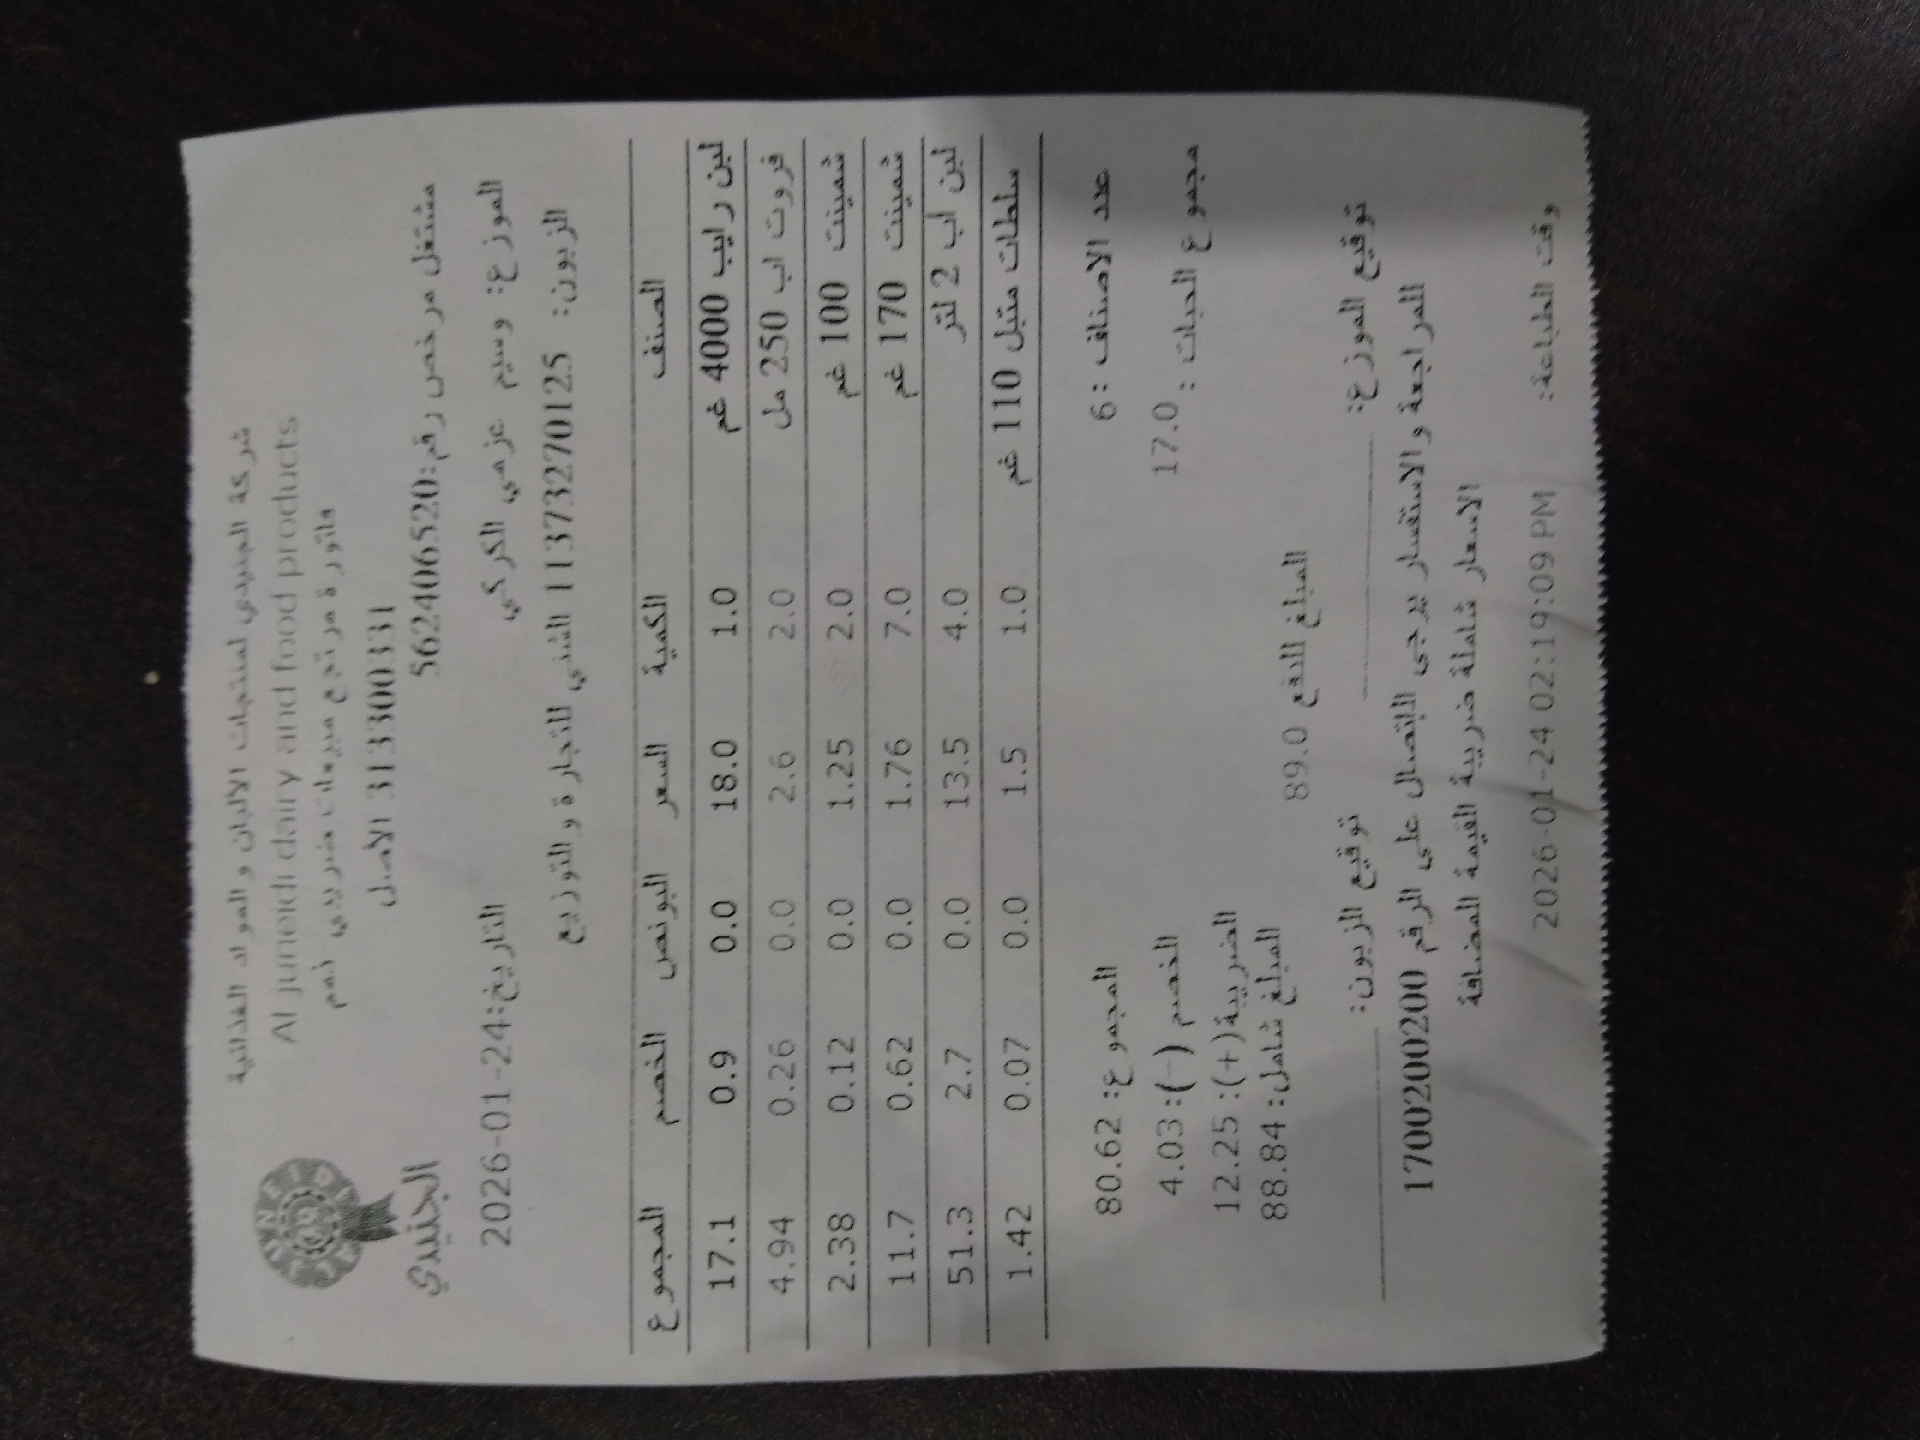 شركة الجنيدي لمنتجات الالبان و المواد الغذائية
Al juneidi dairy and food products
فاتورة مرتجع مبيعات ضريبي خصم
313300331 الاصل
مشتغل مرخص رقم:562406520
الجنيدي
الموزع: وسيم عزمي الكركي
التاريخ:2026-01-24
الزبون: 11373270125 الشني للتجارة و التوزيع
الصنف الكمية السعر البونص الخصم المجموع
لبن رايب 4000 غم 1.0 18.0 0.0 0.9 17.1
فروت اب 250 مل 2.0 2.6 0.0 0.26 4.94
شمينت 100 غم 2.0 1.25 0.0 0.12 2.38
شمينت 170 غم 7.0 1.76 0.0 0.62 11.7
لبن اب 2 لتر 4.0 13.5 0.0 2.7 51.3
سلطات متبل 110 غم 1.0 1.5 0.0 0.07 1.42
عدد الاصناف :6 المجموع: 80.62
مجموع الحبات : 17.0 الخصم (-): 4.03
الضريبة(+): 12.25
المبلغ للدفع 89.0 المبلغ شامل: 88.84
توقيع الموزع: توقيع الزبون:
للمراجعة و الاستفسار يرجى الاتصال على الرقم 1700200200
الاسعار شاملة ضريبة القيمة المضافة
وقت الطباعة: 2026-01-24 02:19:09 PM